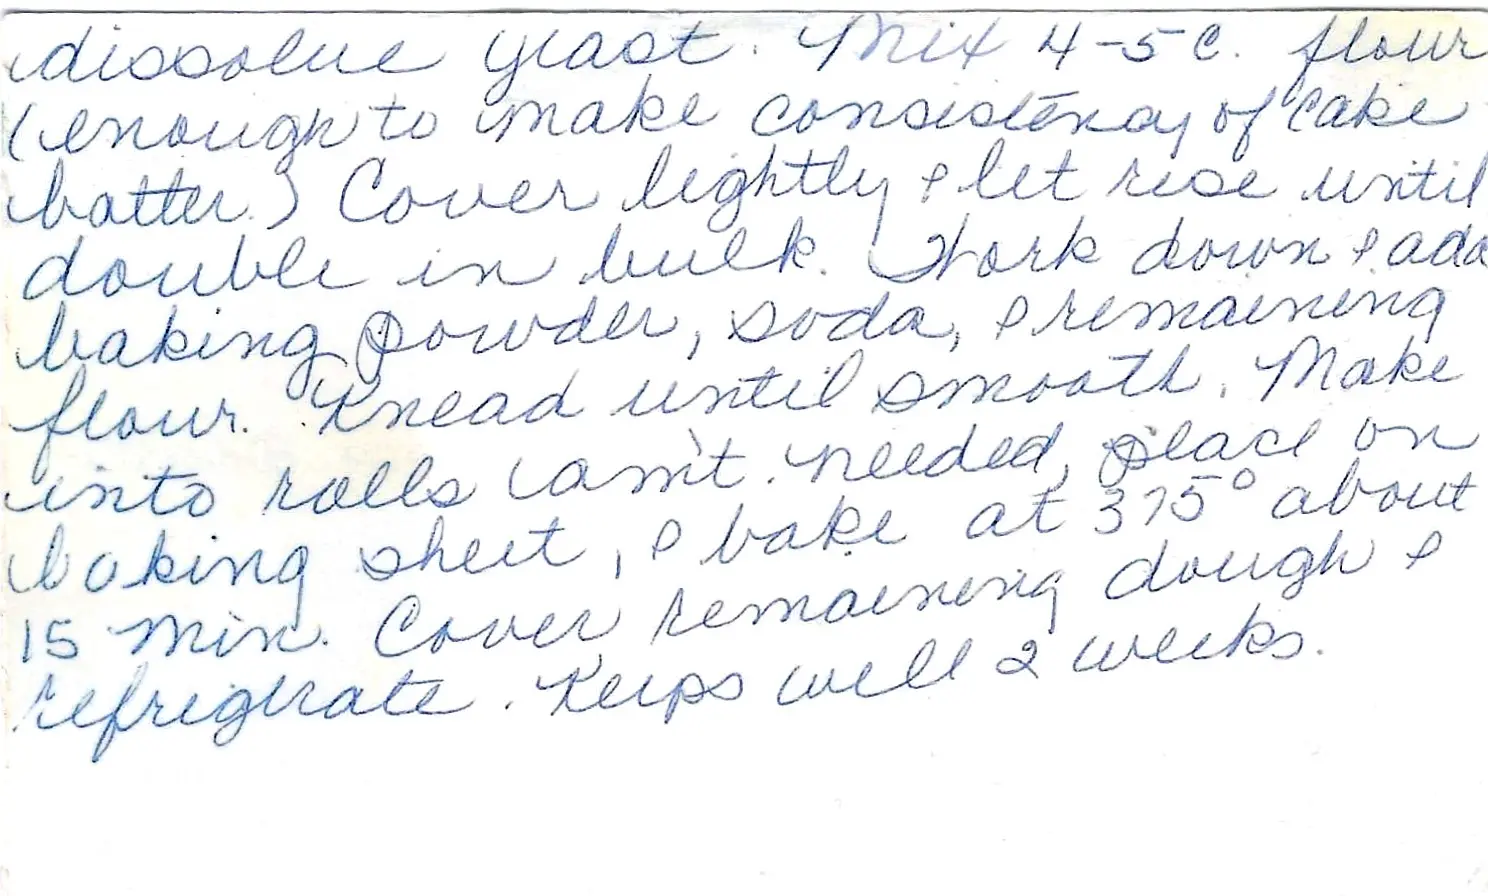 dissolve yeast. Mix 4-5 c. flour
(enough to make consistency of cake
batter.) Cover lightly & let rise until
double in bulk. Work down & add
baking powder, soda, & remaining
flour. Knead until smooth. Make
into rolls amt. needed, place on
baking sheet, & bake at 375° about
15 min. Cover remaining dough &
refrigerate. Keeps well 2 weeks.